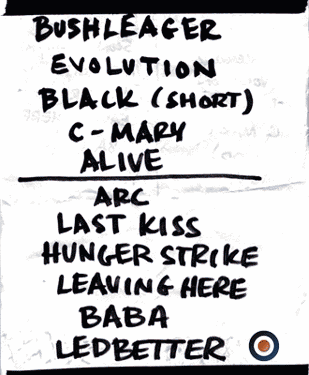 BUSHLEAGER
EVOLUTION
BLACK (SHORT)
C-MARY
ALIVE
ARC
LAST KISS
HUNGER STRIKE
LEAVING HERE
BABA
LEDBETTER